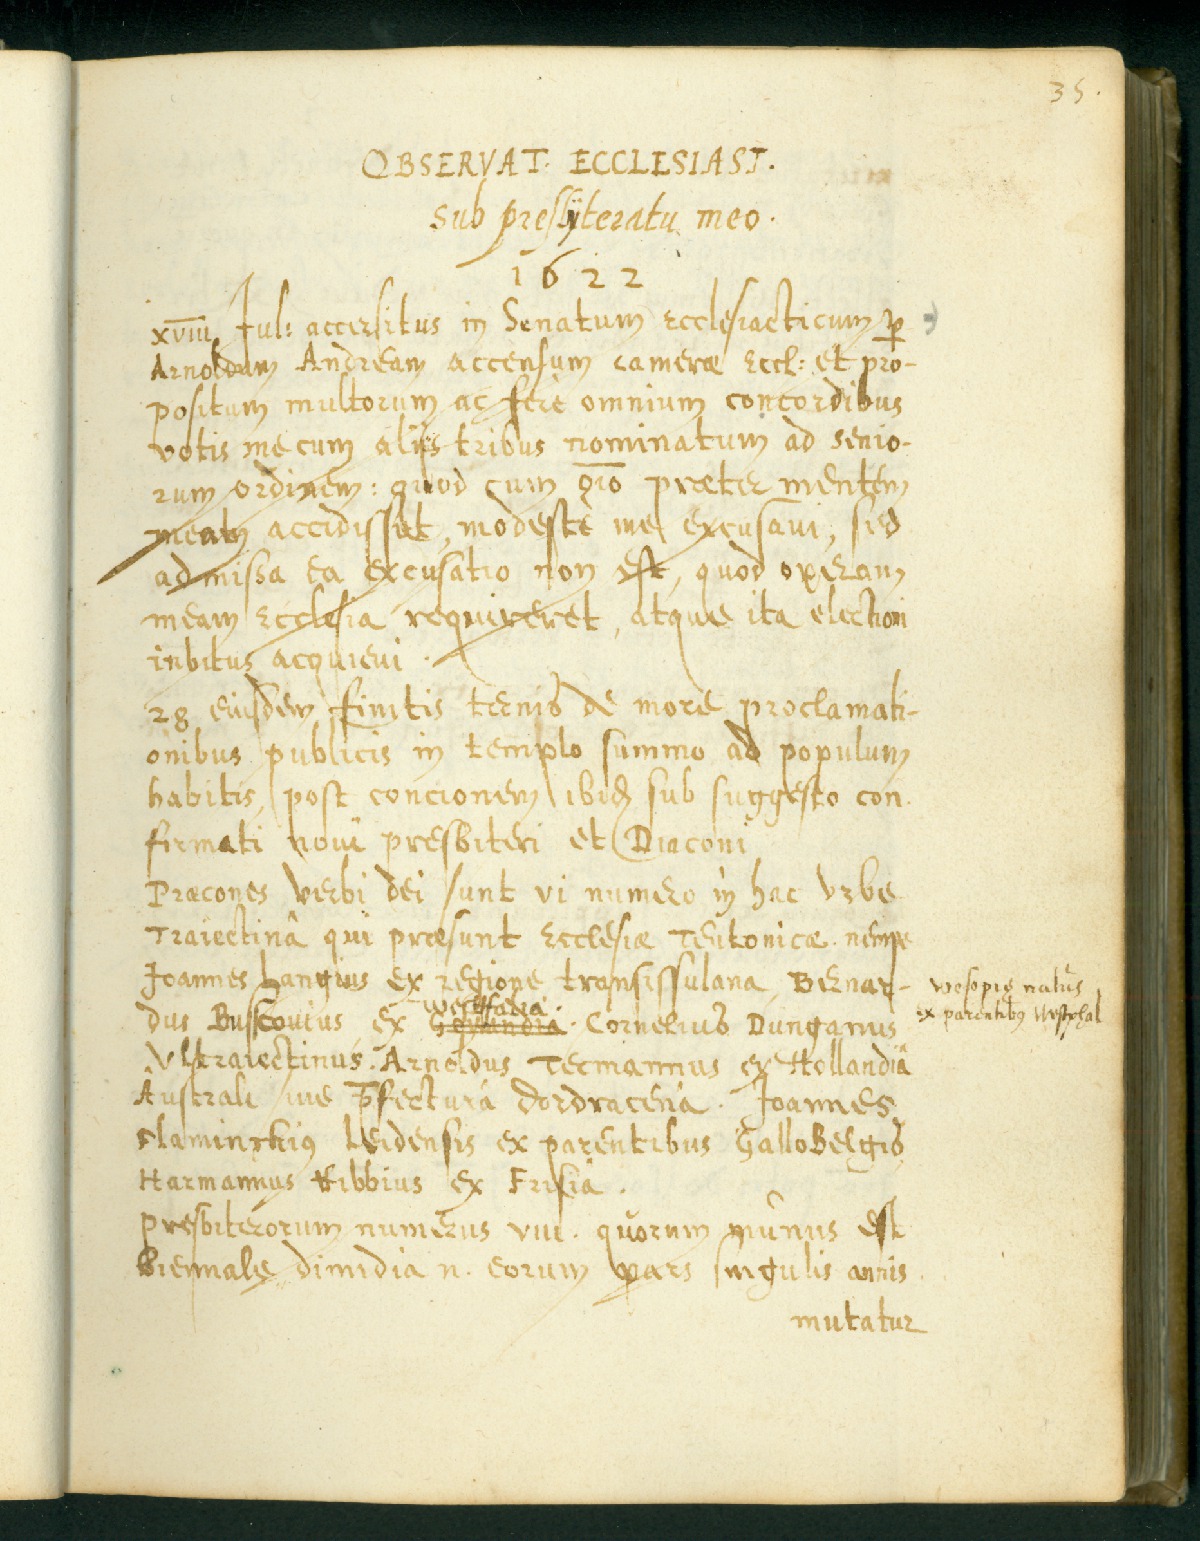 35.
OBSERVAT: ECCLESIAST.
sub presbÿteratu meo.
1622
xviii Jul: accersitus in Senatum Ecclesiasticum per
Arnoldum Andream accensum cameræ Eccl: et pro-
positum multorum ac ferè omnium concordibus
votis me cum alijs tribus nominatum ad senio-
rum ordinem: quod cum præter mentem
meam accidisset, modestè me excusavi, sed
admissa ea excusatio non est, quod operam
meam Ecclesia requireret, atque ita electioni
inbitus acquievi.
28 eiusdem finitis ternis de more proclamati-
onibus publicis in templo summo ad populum
habitis, post concionem ibid sub suggesto con-
firmati novi presbiteri et Diaconi
Præcones verbi dei sunt vi numero in hac Urbe
Traiectinâ qui præsunt Ecclesiæ Teutonicæ. nempe
Joannes Langius ex regione transissulana, Bernar-
dus Busschovius ex Westfalia. Cornelius Dunganus
wesopiæ natus
ex parentibus Westphal
Ultraiectinus. Arnoldus Tecmannus ex Hollandiâ
Australi sive p̄fecturâ dordracenâ. Joannes
Flaminckius Leidensis ex parentibus GalloBelgis
Harmannus Ribbius ex Frisia.
Presbiterorum numerus viii. quorum munus est
biennale dimidia n. eorum pars singulis annis
mutatur